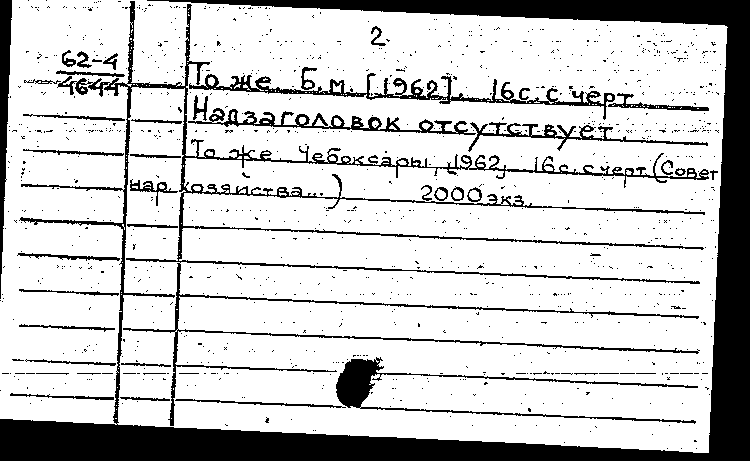 2.
62-4
4644
То же. Б.м. [1962]. 16 с. с черт.
Надзаголовок отсутствует.
То же. Чебоксары, 1962, 16 с. с черт (Совет
нар. хозяйства...) 2000 экз.